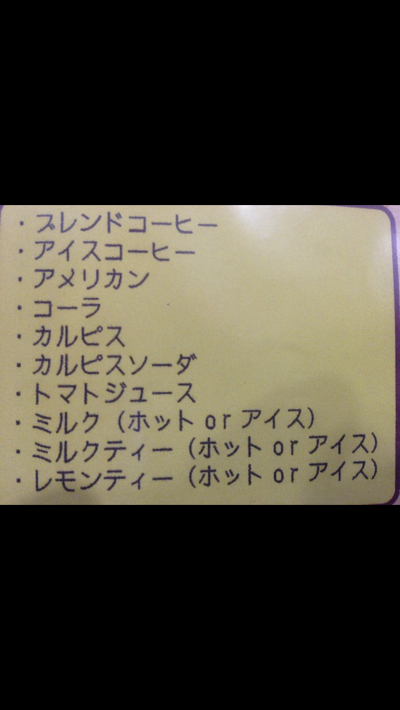 ・ブレンドコーヒー
・アイスコーヒー
・アメリカン
・コーラ
・カルピス
・カルピスソーダ
・トマトジュース
・ミルク（ホット or アイス）
・ミルクティー（ホット or アイス）
・レモンティー（ホット or アイス）